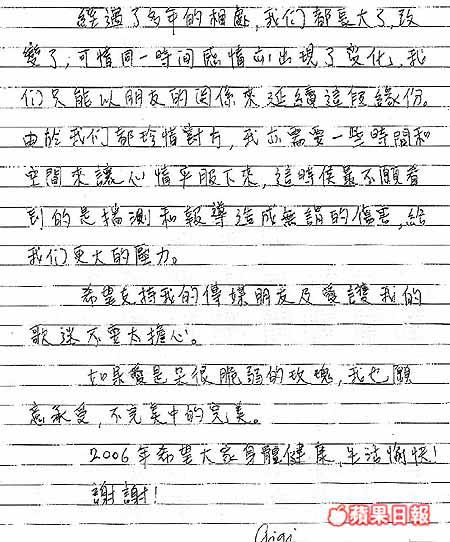 經過了多年的相處，我们都長大了，改
變了，可惜同一時间感情亦出現了变化，我
们只能以朋友的関係來延續這段緣份。
由於我们都珍惜對方，我亦需要一些時間和
空間來讓心情平服下來，這時侯最不願看
到的是揣測和報導造成無謂的傷害，給
我们更大的壓力。
希望支持我的傳媒朋友及愛護我的
歌迷不要太擔心。
如果愛是朵很脆弱的玫瑰，我也願
意承受，不完美中的完美。
2006年希望大家身體健康，生活愉快！
謝謝！
Gigi
蘋果日報